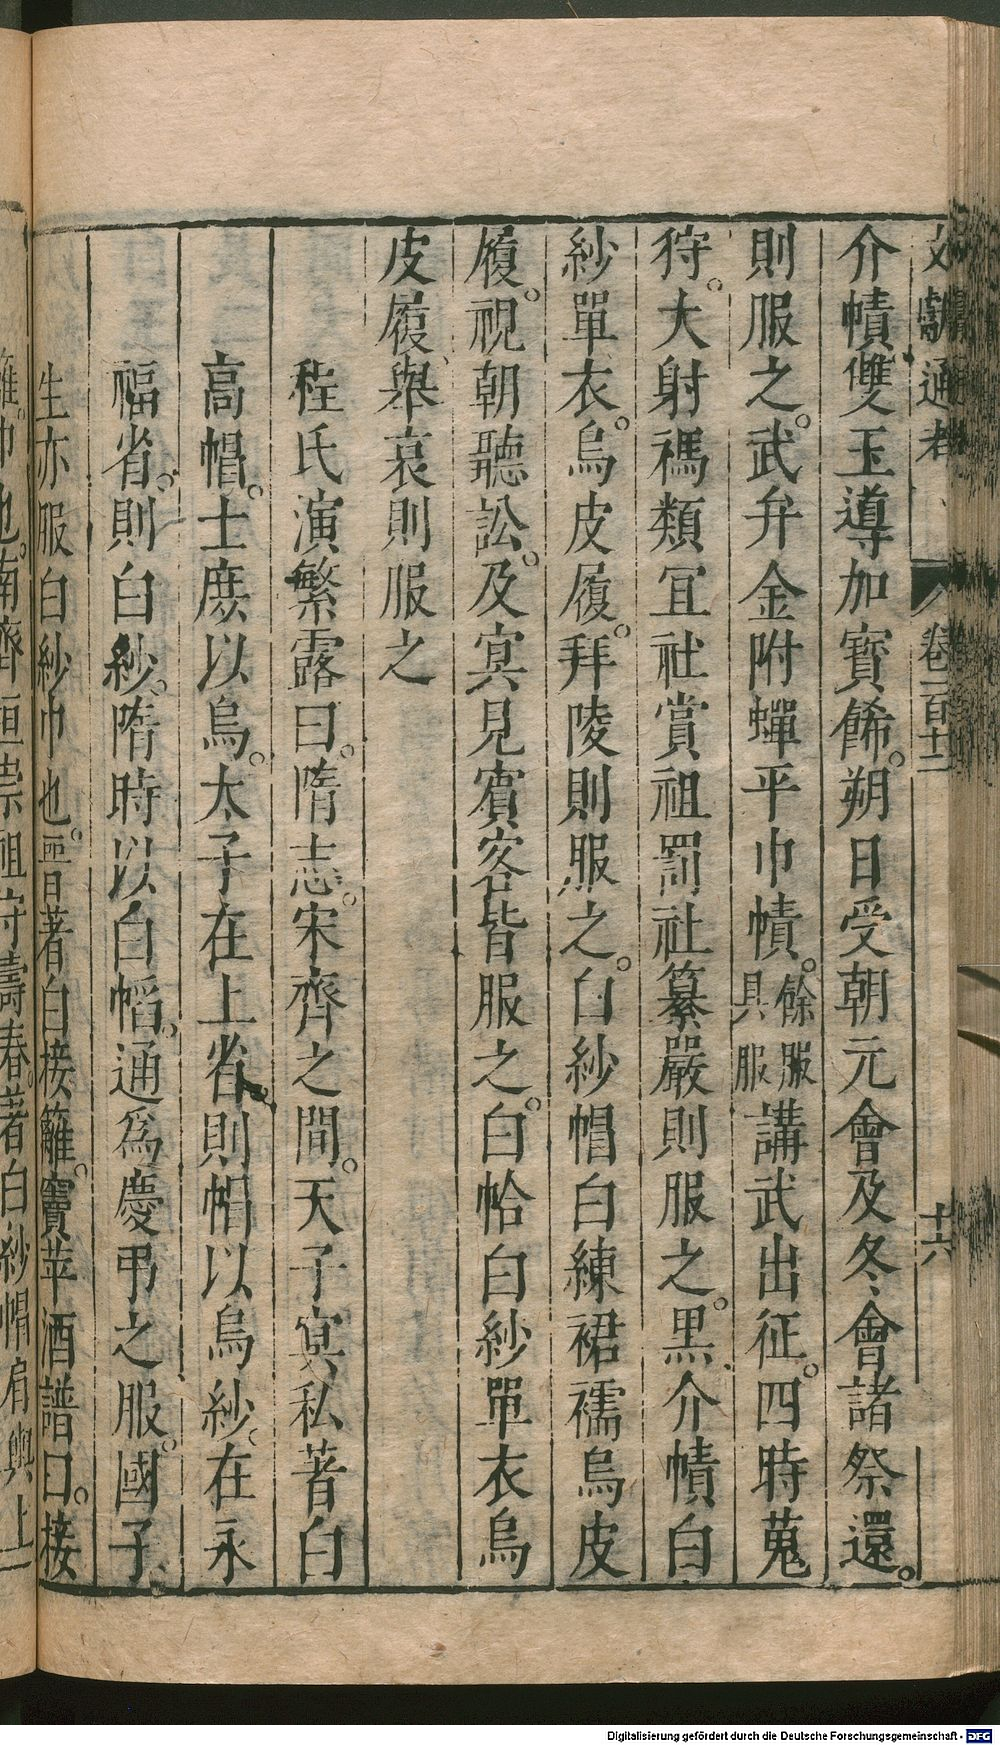 文獻通考 卷一百十二 十六
介幘雙玉導加寶餙。朔日受朝元會及冬會諸祭還。
則服之。武弁金附蟬平巾幘。餘服具服講武出征。四時蒐
狩。大射禡類宜社賞祖罰社纂嚴則服之。黑介幘白
紗單衣。烏皮履。拜陵則服之。白紗帽白練裙襦烏皮
履。視朝聽訟。及宴見賓客皆服之。白帢白紗單衣烏
皮履、舉哀則服之
程氏演繁露曰。隋志。宋齊之間。天子宴私著白
高帽。士庶以烏。太子在上省則帽以烏紗。在永
福省。則白紗。隋時以白幍。通爲慶弔之服。國子
生亦服白紗巾也。晉著白接䍦。竇苹酒譜曰。接
䍦。巾也。南齊桓崇祖守壽春。著白紗帽肩輿上
Digitalisierung gefördert durch die Deutsche Forschungsgemeinschaft - DFG